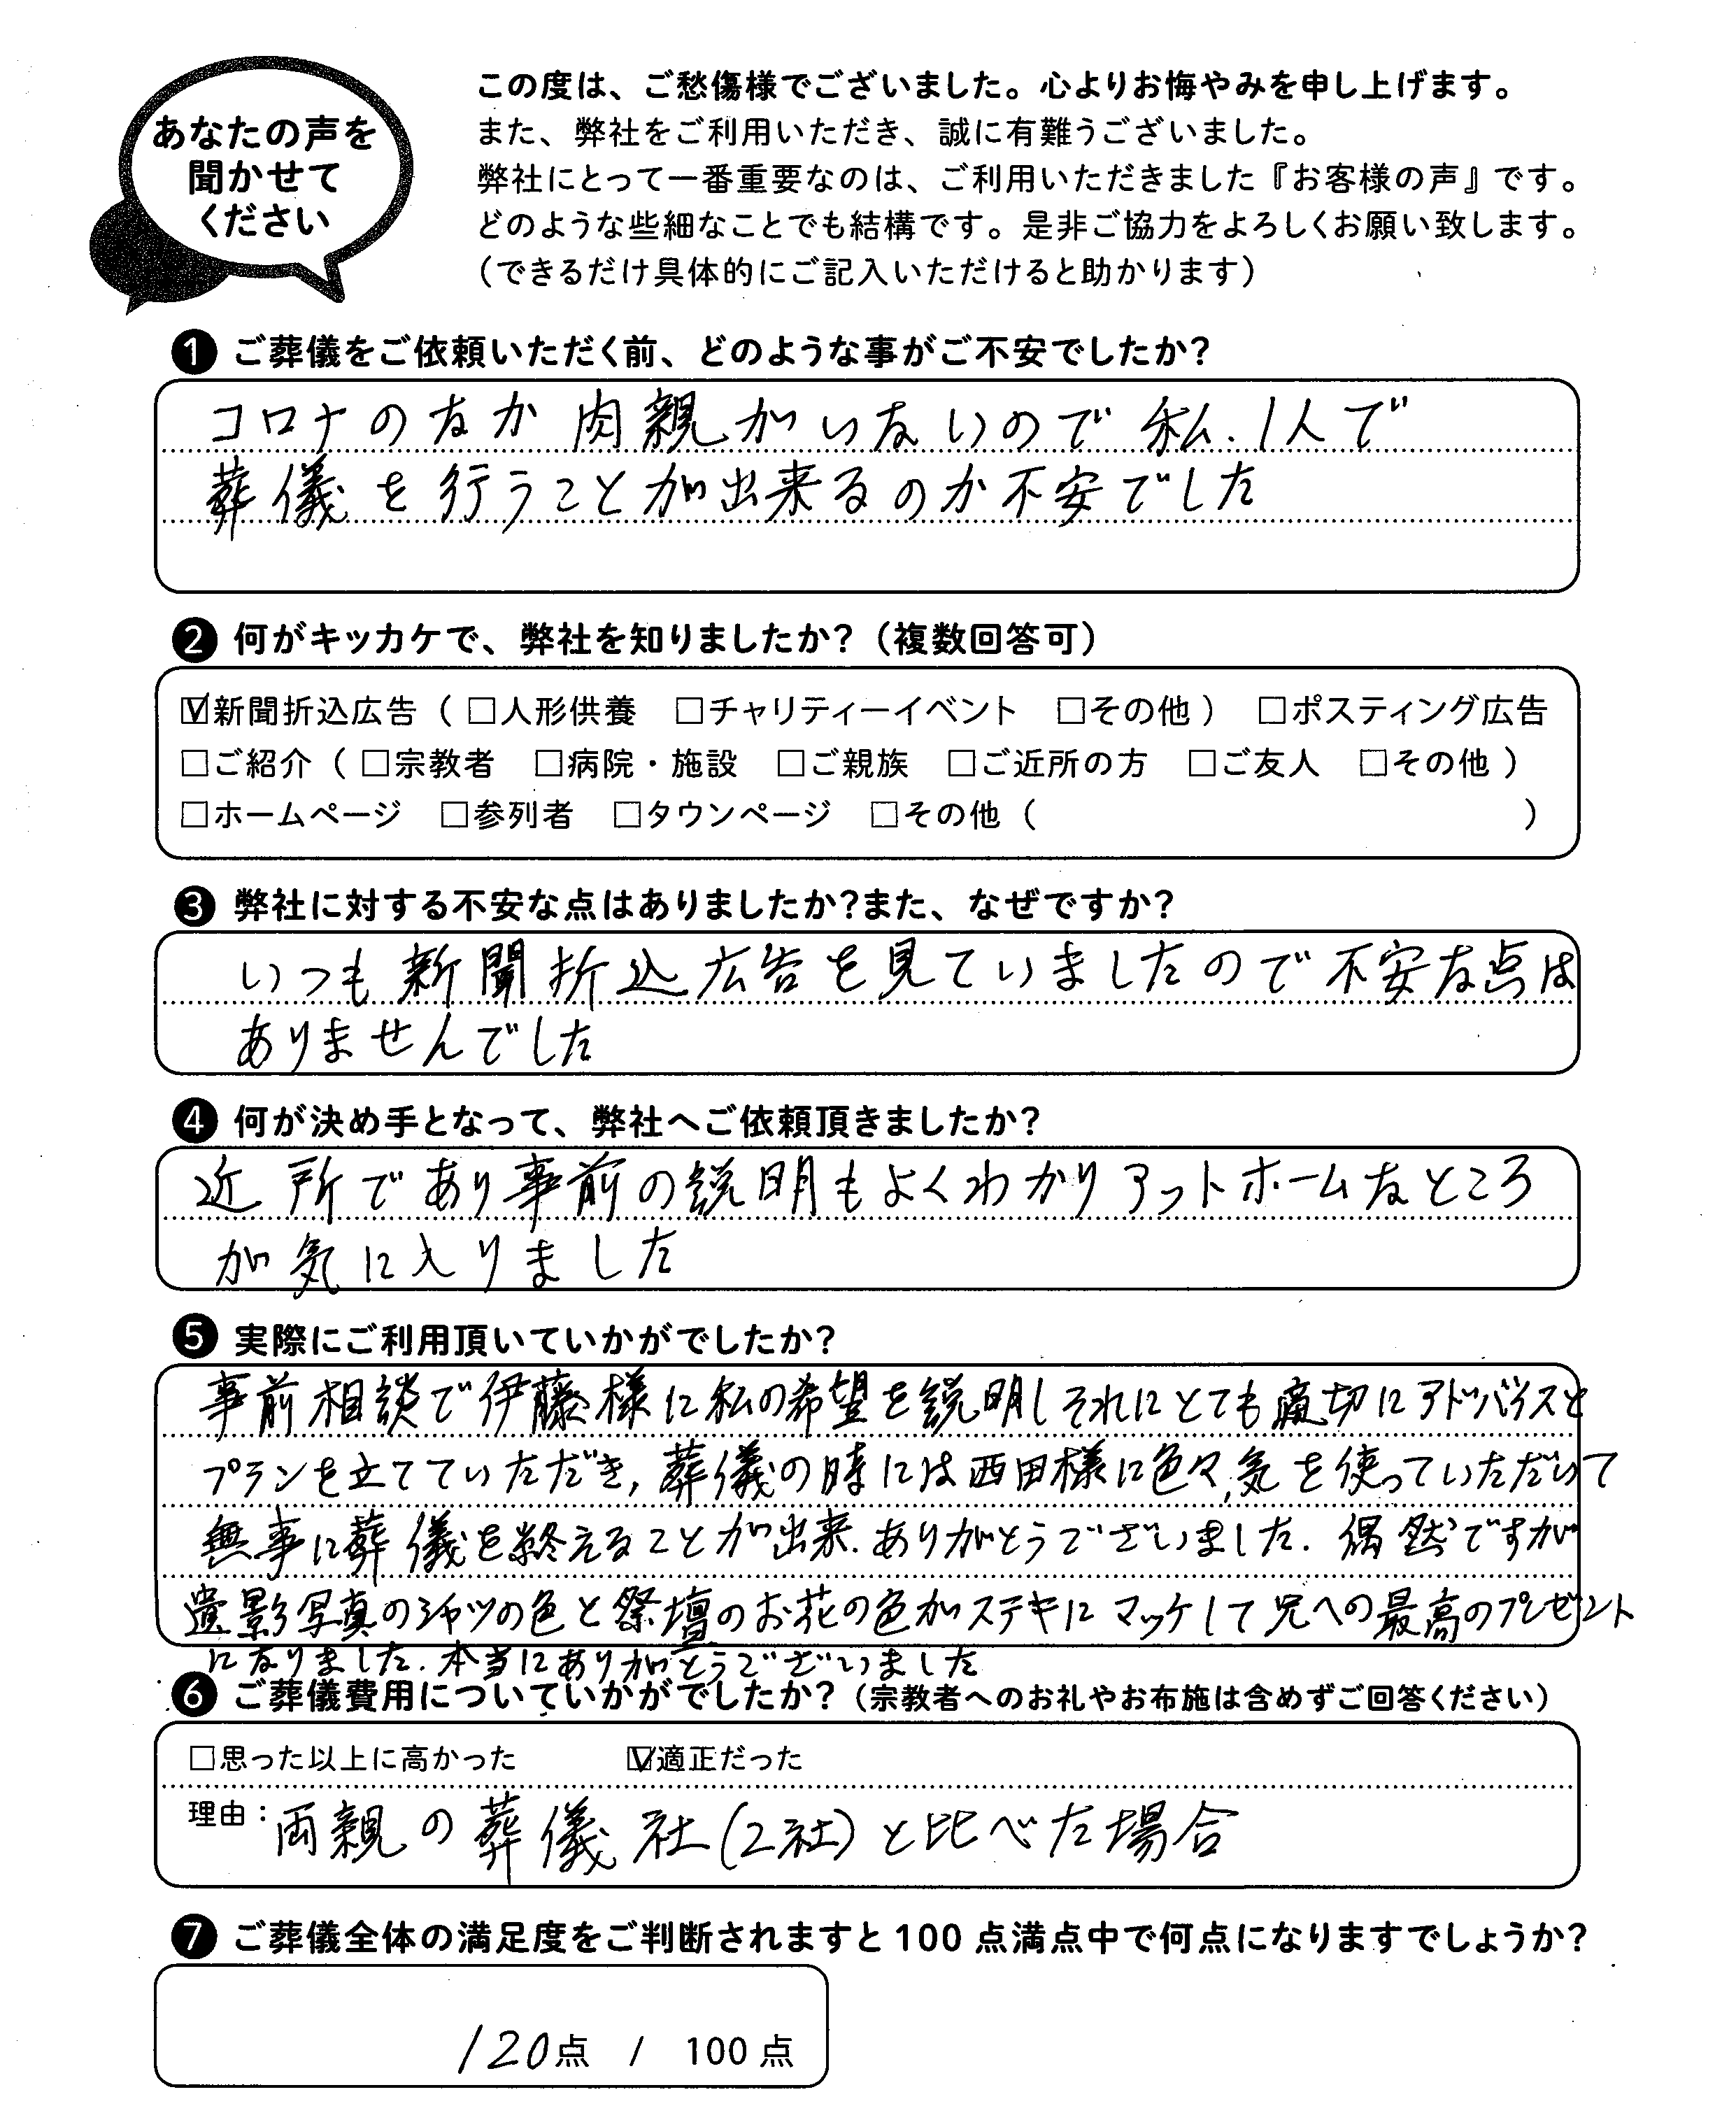 あなたの声を
聞かせて
ください
この度は、ご愁傷様でございました。心よりお悔やみを申し上げます。
また、弊社をご利用いただき、誠に有難うございました。
弊社にとって一番重要なのは、ご利用いただきました『お客様の声』です。
どのような些細なことでも結構です。是非ご協力をよろしくお願い致します。
（できるだけ具体的にご記入いただけると助かります）
❶ ご葬儀をご依頼いただく前、どのような事がご不安でしたか?
コロナのなか肉親がいないので私.1人で
葬儀を行うことが出来るのか不安でした
❷ 何がキッカケで、弊社を知りましたか?（複数回答可）
☑新聞折込広告（ □人形供養 □チャリティーイベント □その他 ） □ポスティング広告
□ご紹介（ □宗教者 □病院・施設 □ご親族 □ご近所の方 □ご友人 □その他 ）
□ホームページ □参列者 □タウンページ □その他（ ）
❸ 弊社に対する不安な点はありましたか?また、なぜですか?
いつも新聞折込広告を見ていましたので不安な点は
ありませんでした
❹ 何が決め手となって、弊社へご依頼頂きましたか?
近所であり事前の説明もよくわかりアットホームなところ
が気に入りました
❺ 実際にご利用頂いていかがでしたか?
事前相談で伊藤様に私の希望を説明しそれにとても適切にアドバイスと
プランを立てていただき,葬儀の時には西田様に色々,気を使っていただいて
無事に葬儀を終えることが出来.ありがとうございました.偶然ですが
遺影写真のシャツの色と祭壇のお花の色がステキにマッケして兄への最高のプレゼント
になりました.本当にありがとうございました
❻ ご葬儀費用についていかがでしたか?（宗教者へのお礼やお布施は含めずご回答ください）
□思った以上に高かった ☑適正だった
理由：両親の葬儀社(2社)と比べた場合
❼ ご葬儀全体の満足度をご判断されますと100点満点中で何点になりますでしょうか?
120点 / 100点